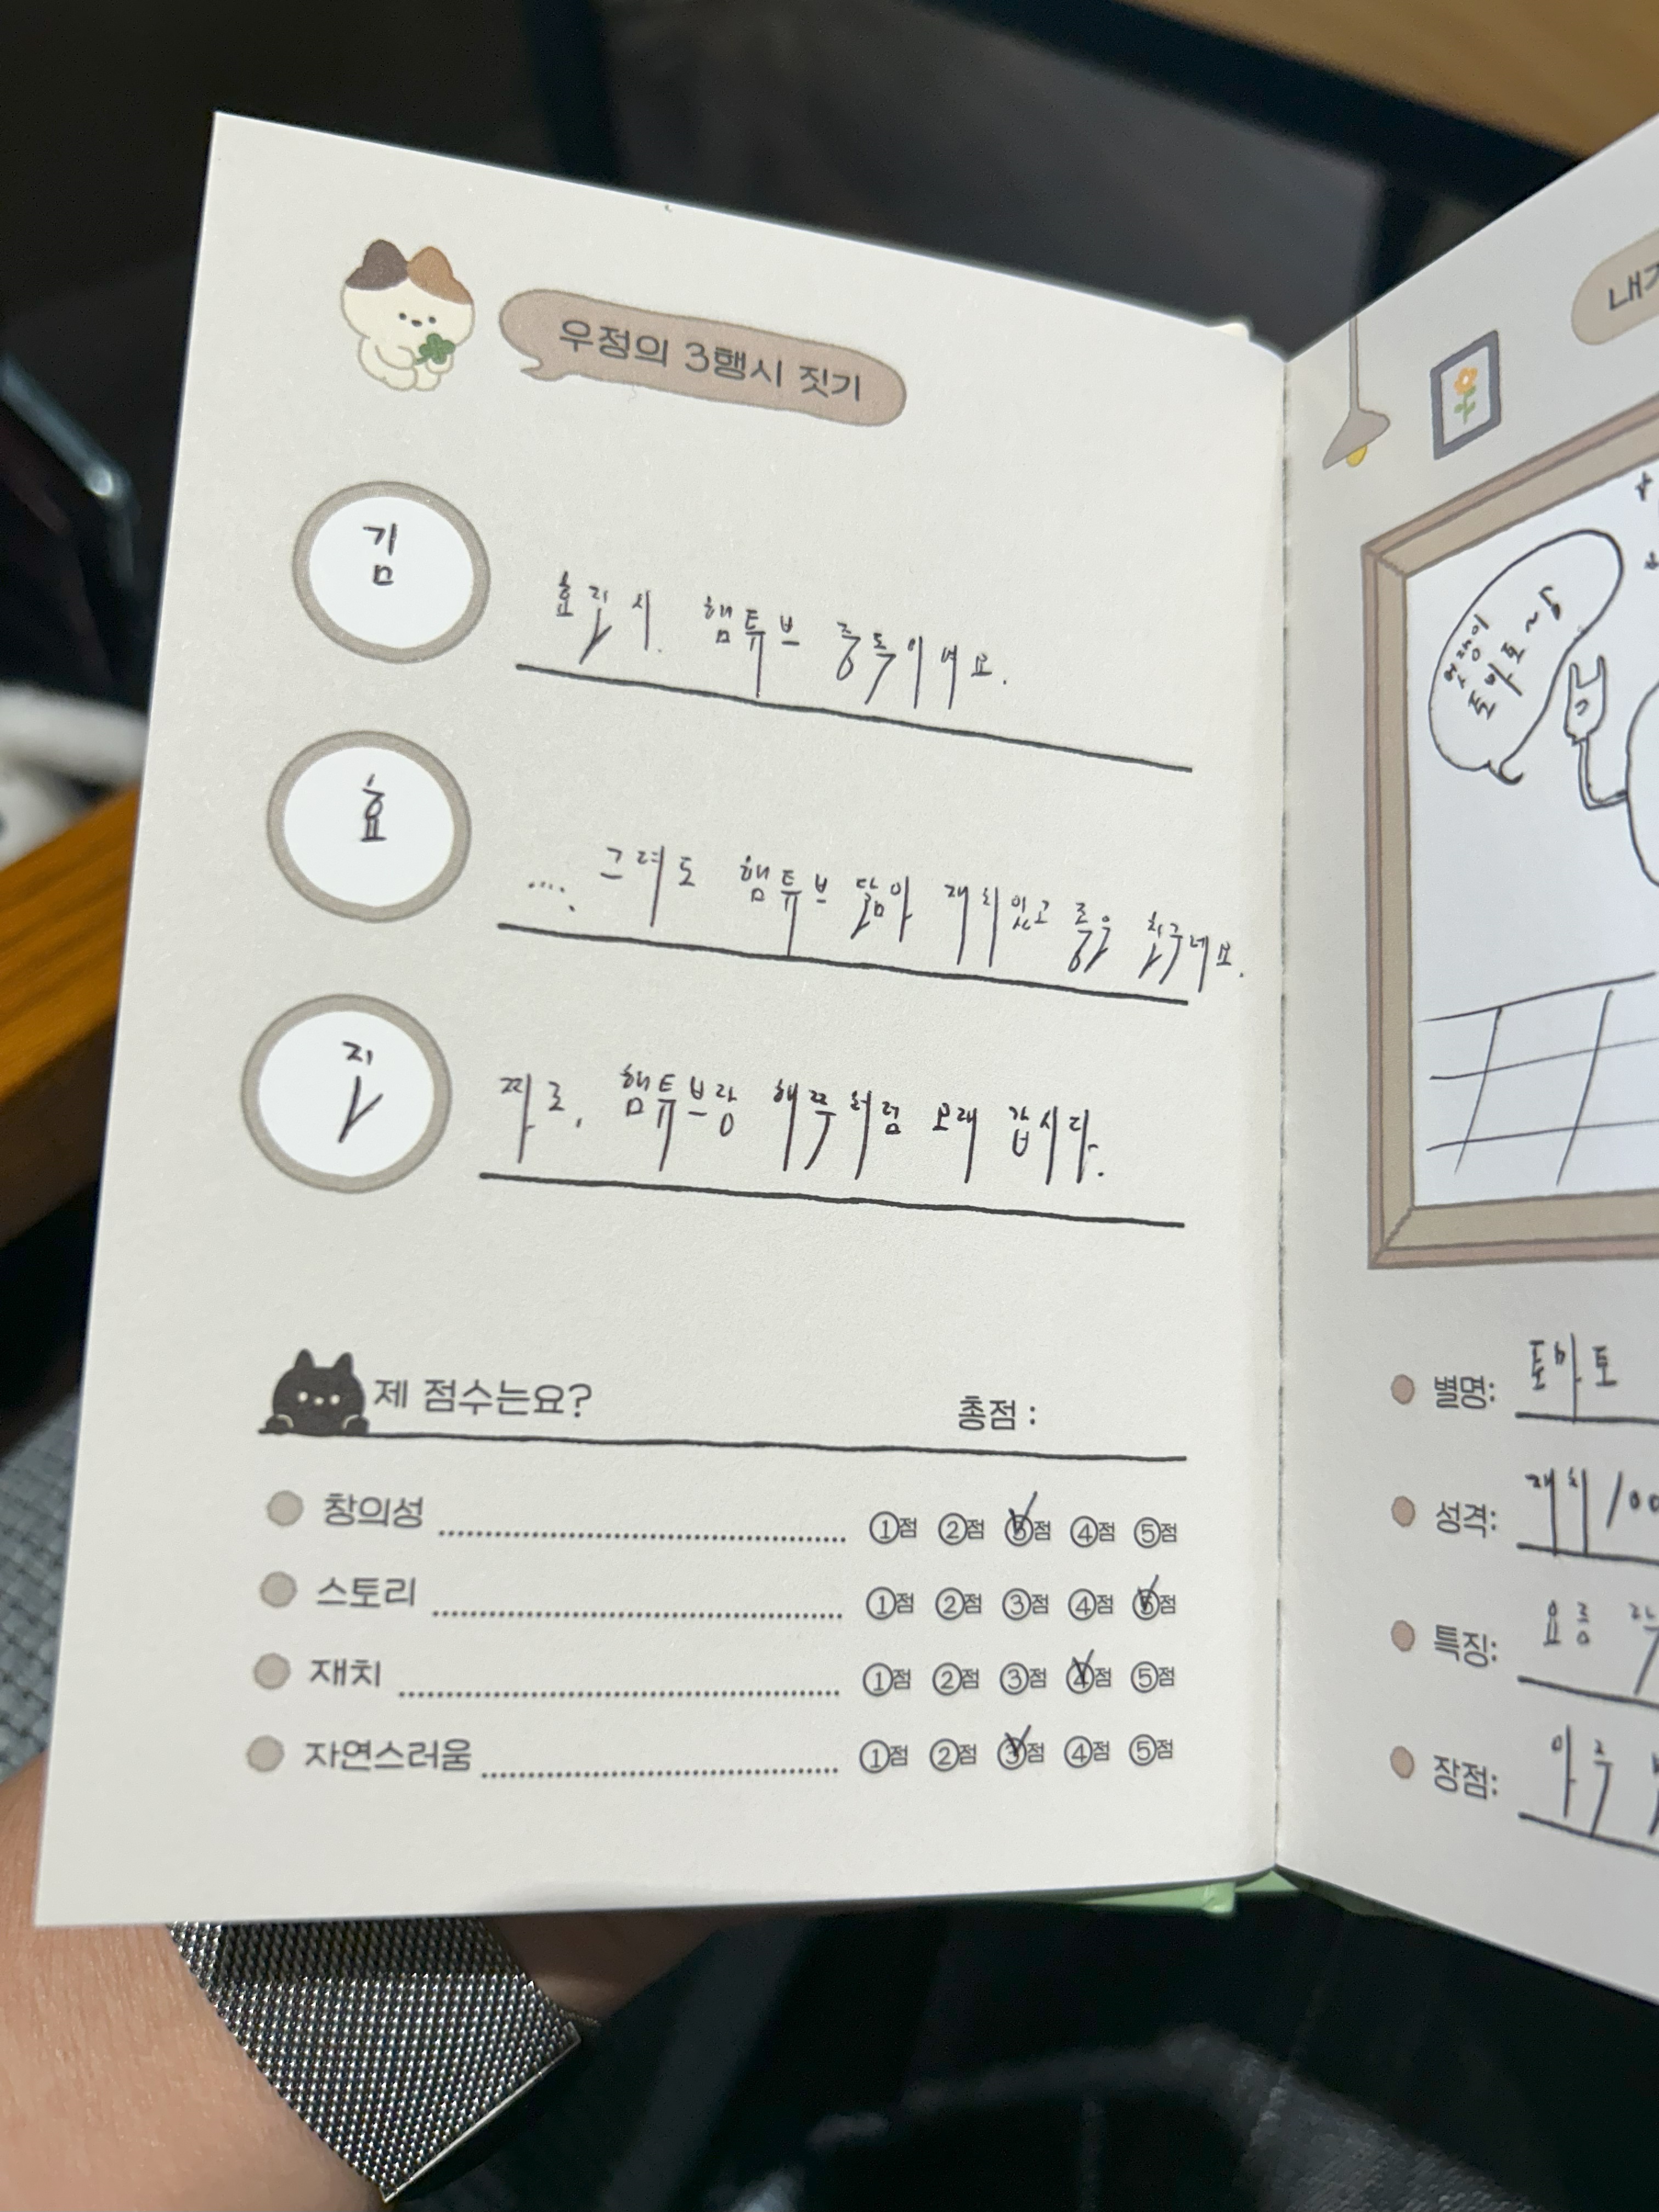 우정의 3행시 짓기
김
효진씨. 햄튜브 중독이에요.
효
.... 그래도 햄튜브 닮아 재치있고 좋은 친구네요.
진
짜로, 햄튜브랑 해쭈처럼 오래 갑시다.
제 점수는요?
총점 :
창의성 1점 2점 3점 4점 5점
스토리 1점 2점 3점 4점 5점
재치 1점 2점 3점 4점 5점
자연스러움 1점 2점 3점 4점 5점
멋쟁이
토마토
별명: 토마토
성격: 재치 100
특징:
장점: 아주